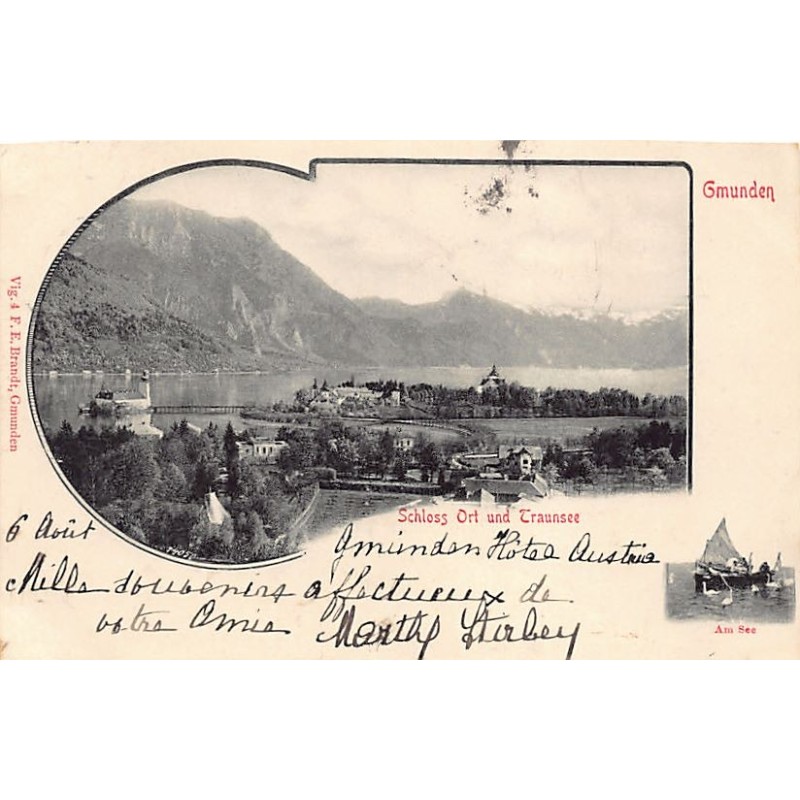 Gmunden
Vig. 4 F. E. Brandt, Gmunden
Schloss Ort und Traunsee
6 Août
Gmünden Hôtel Austria
Mille souvenirs affectueux de
votre Amie Marthe Stirbey
Am See